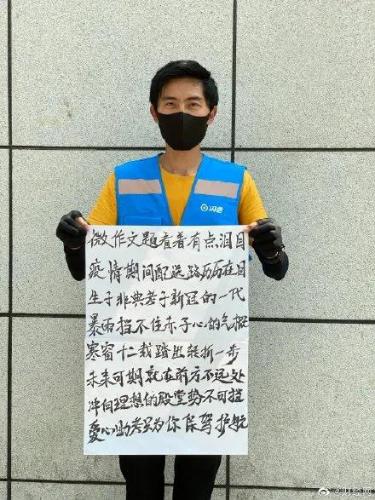 闪送
微作文题看着有点泪目
疫情期间配送路历历在目
生于非典考于新冠的一代
暴雨挡不住赤子心的气概
寒窗十二载踏出转折一步
未来可期就在前方不远处
冲向理想的殿堂势不可挡
爱心助考只为你保驾护航